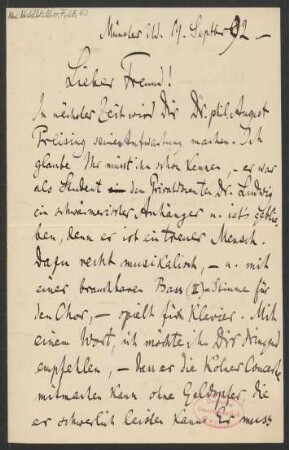 Münster i/W. 19. Septbr 92 –
Lieber Freund!
In nächster Zeit wird Dir Dr. phil. August
Preising seine Aufwartung machen. Ich
glaube Ihr müsst ihn schon kennen, – er war
als Student den Privatdocenten Dr. Ludwig
ein schwärmerischer Anhänger u. ist's geblie-
ben, denn er ist ein treuer Mensch.
Dazu recht musikalisch, – u. mit
einer brauchbaren Bass (II)-Stimme für
den Chor, – spielt für Klavier. – Mit
einem Wort, ich möchte ihn Dir dringend
empfehlen, – dass er die Kölner Concerte
mitmachen kann ohne Geldopfer die
er schwerlich leisten kann. Er muss